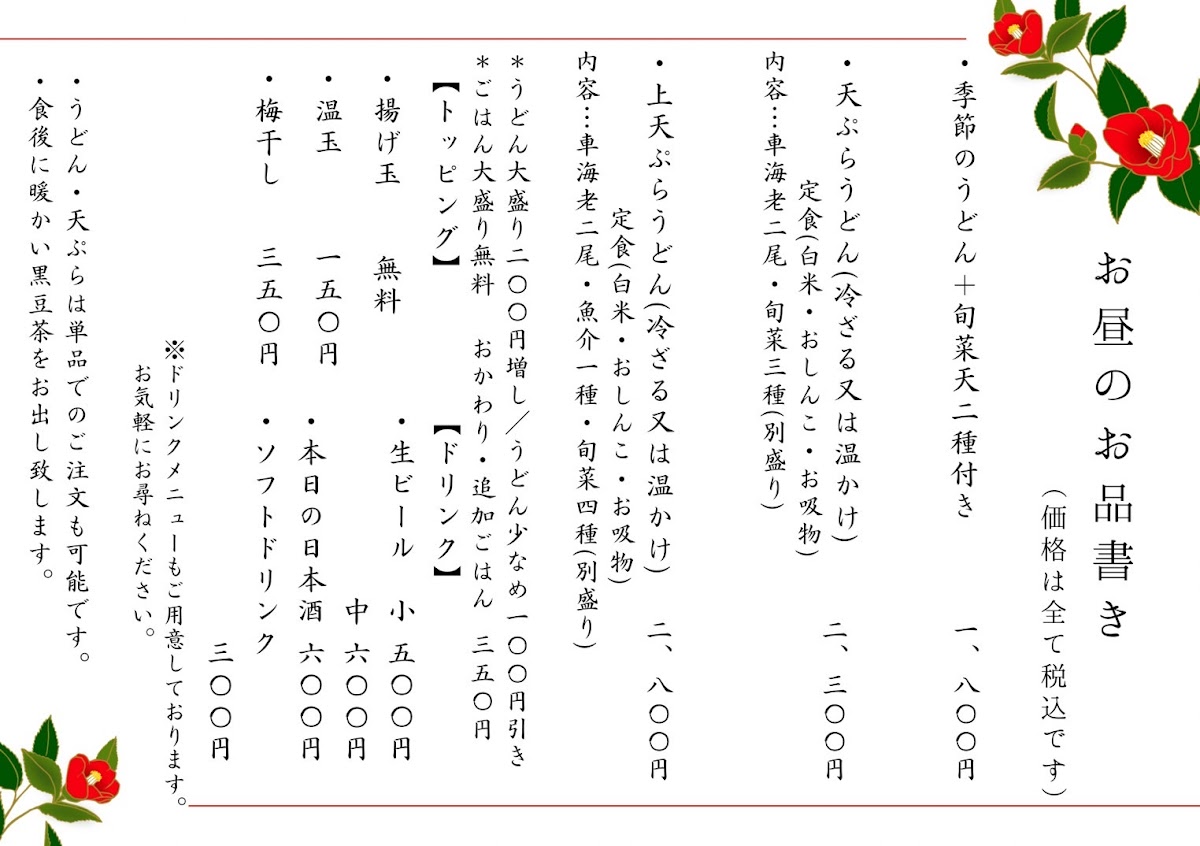 お昼のお品書き
(価格は全て税込です)
・季節のうどん+旬菜天二種付き 一、八〇〇円
・天ぷらうどん(冷ざる又は温かけ) 二、三〇〇円
定食(白米・おしんこ・お吸物)
内容…車海老二尾・旬菜三種(別盛り)
・上天ぷらうどん(冷ざる又は温かけ) 二、八〇〇円
定食(白米・おしんこ・お吸物)
内容…車海老二尾・魚介一種・旬菜四種(別盛り)
*うどん大盛り二〇〇円増し/うどん少なめ一〇〇円引き
*ごはん大盛り無料 おかわり・追加ごはん 三五〇円
【トッピング】
・揚げ玉 無料
・温玉 一五〇円
・梅干し 三五〇円
【ドリンク】
・生ビール 小 五〇〇円
中 六〇〇円
・本日の日本酒 六〇〇円
・ソフトドリンク
三〇〇円
※ドリンクメニューもご用意しております。
お気軽にお尋ねください。
・うどん・天ぷらは単品でのご注文も可能です。
・食後に暖かい黒豆茶をお出し致します。